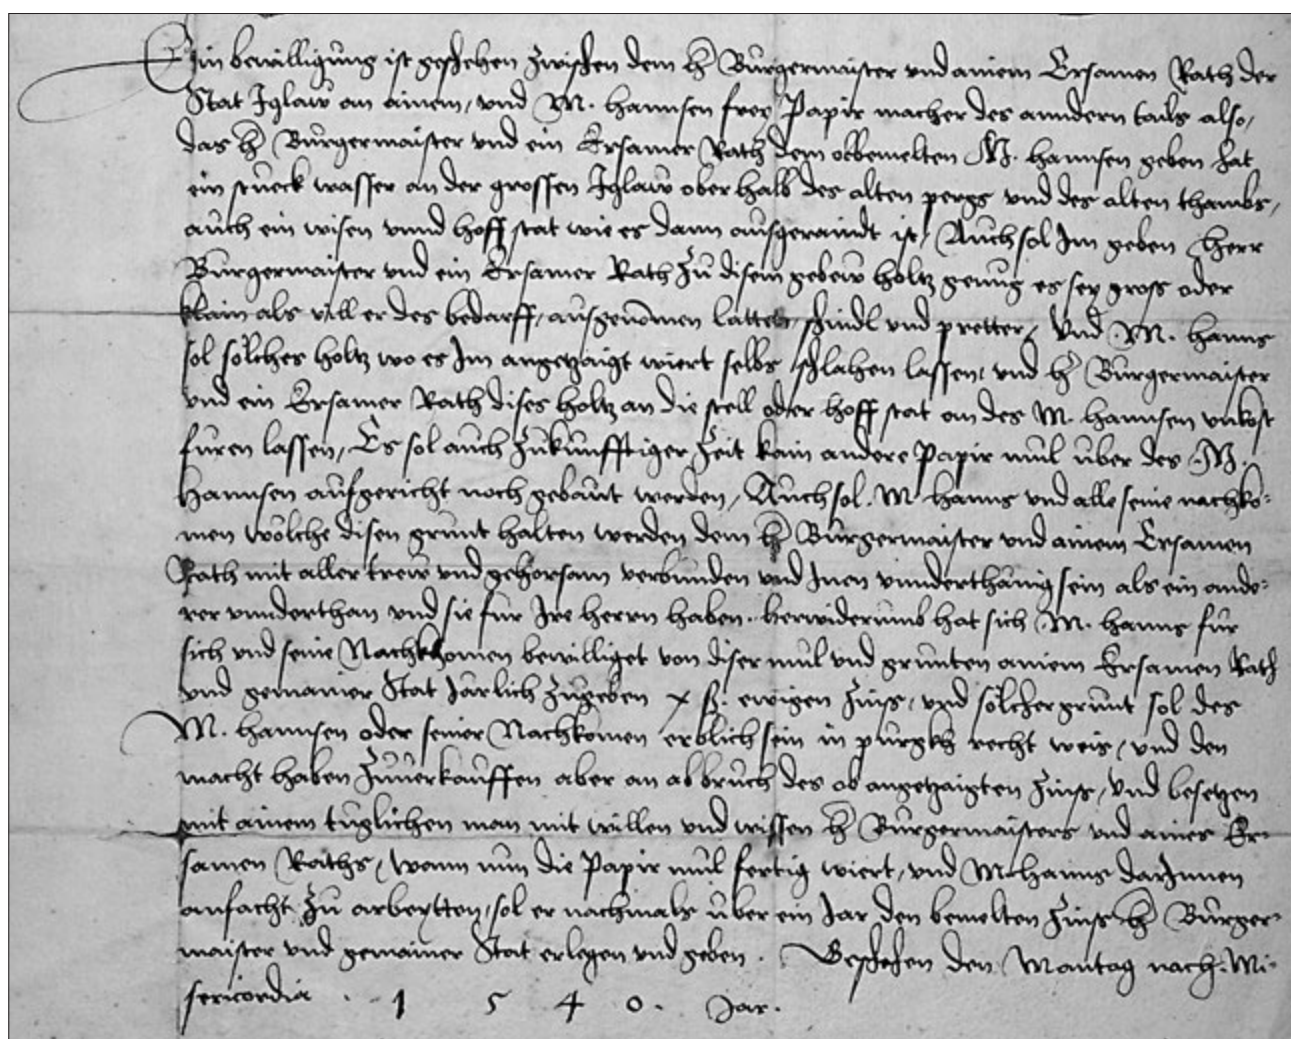 Ein bewilligung ist geschehen zwischen dem h Burgermaister vnd ainem Ersamen Rath der
Stat Iglaw an ainem, vnd M. hannsen frey Papir macher des anndern tails also,
das h Burgermaister vnd ein Ersamer Rath dem obbemelten M. hannsen geben hat
ein stueck wasser an der grossen Iglaw oberhalb des alten pergs vnd des alten thambs,
auch ein wisen vnnd hoff stat wie es dann ausgeraindt ist, Auch sol Im geben herr
Burgermaister vnd ein Ersamer Rath zu disem gebew holtz genug es sey gross oder
klain als vill er des bedarff, ausgenomen latten, schindl vnd pretter, Vnd M. hanns
sol solches holtz wo es Im angetzaigt wiert selbs schlahen lassen, vnd h Burgermaister
vnd ein Ersamer Rath dises holtz an die stell oder hoff stat an des M. hannsen vnkost
furen lassen, Es sol auch zukunfftiger zeit kain andere Papir mul uber des M.
Hannsen aufgericht noch gebaut werden, Auch sol M hanns vnd alle seine nachko-
men wolche disen grunt halten werden dem h Burgermaister vnd ainem Ersamen
Rath mit aller trew vnd gehorsam verbunden vnd Inen vnnderthanig sein als ein ande-
rer vnnderthan vnd sie fur Ire herrn haben. herwiderumb hat sich M. hanns fur
sich vnd seine Nachkhomen bewilliget von diser mul vnd grunten ainem Ersamen Rath
vnd gemainer Stat Jarlich zugeben x ß. ewigen zinss, vnd solcher grunt sol des
M. hannsen oder seiner Nachkomen erblich sein in purgkh recht weis, vnd den
macht haben zuuerkauffen aber an abbruch des ob angetzaigten zinss, Vnd besetzen
mit ainem tuglichen man mit willen vnd wissen h Burgermaisters vnd aines Er-
samen Raths, wann nun die Papir mul fertig wiert, vnd M. hanns darInnen
anfacht zu arbeytten, sol er nachmals uber ein Jar den bemelten zinss h Burger-
maister vnd gemainer Stat erlegen vnd geben. Geschehen den Mantag nach Mi-
sericordia . 1 5 4 0 . Jar.